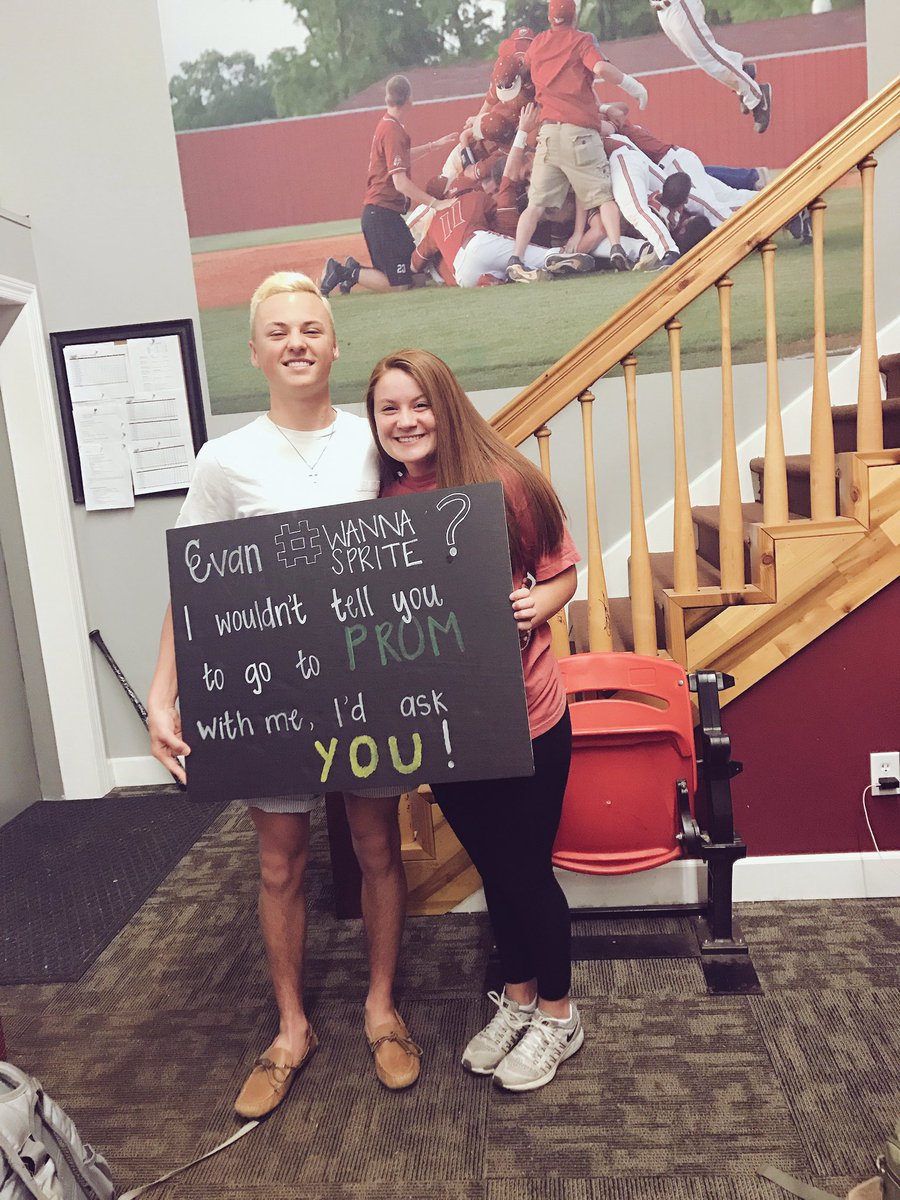 Evan #WANNA SPRITE?
I wouldn't tell you
to go to PROM
with me, I'd ask
YOU!
11
23